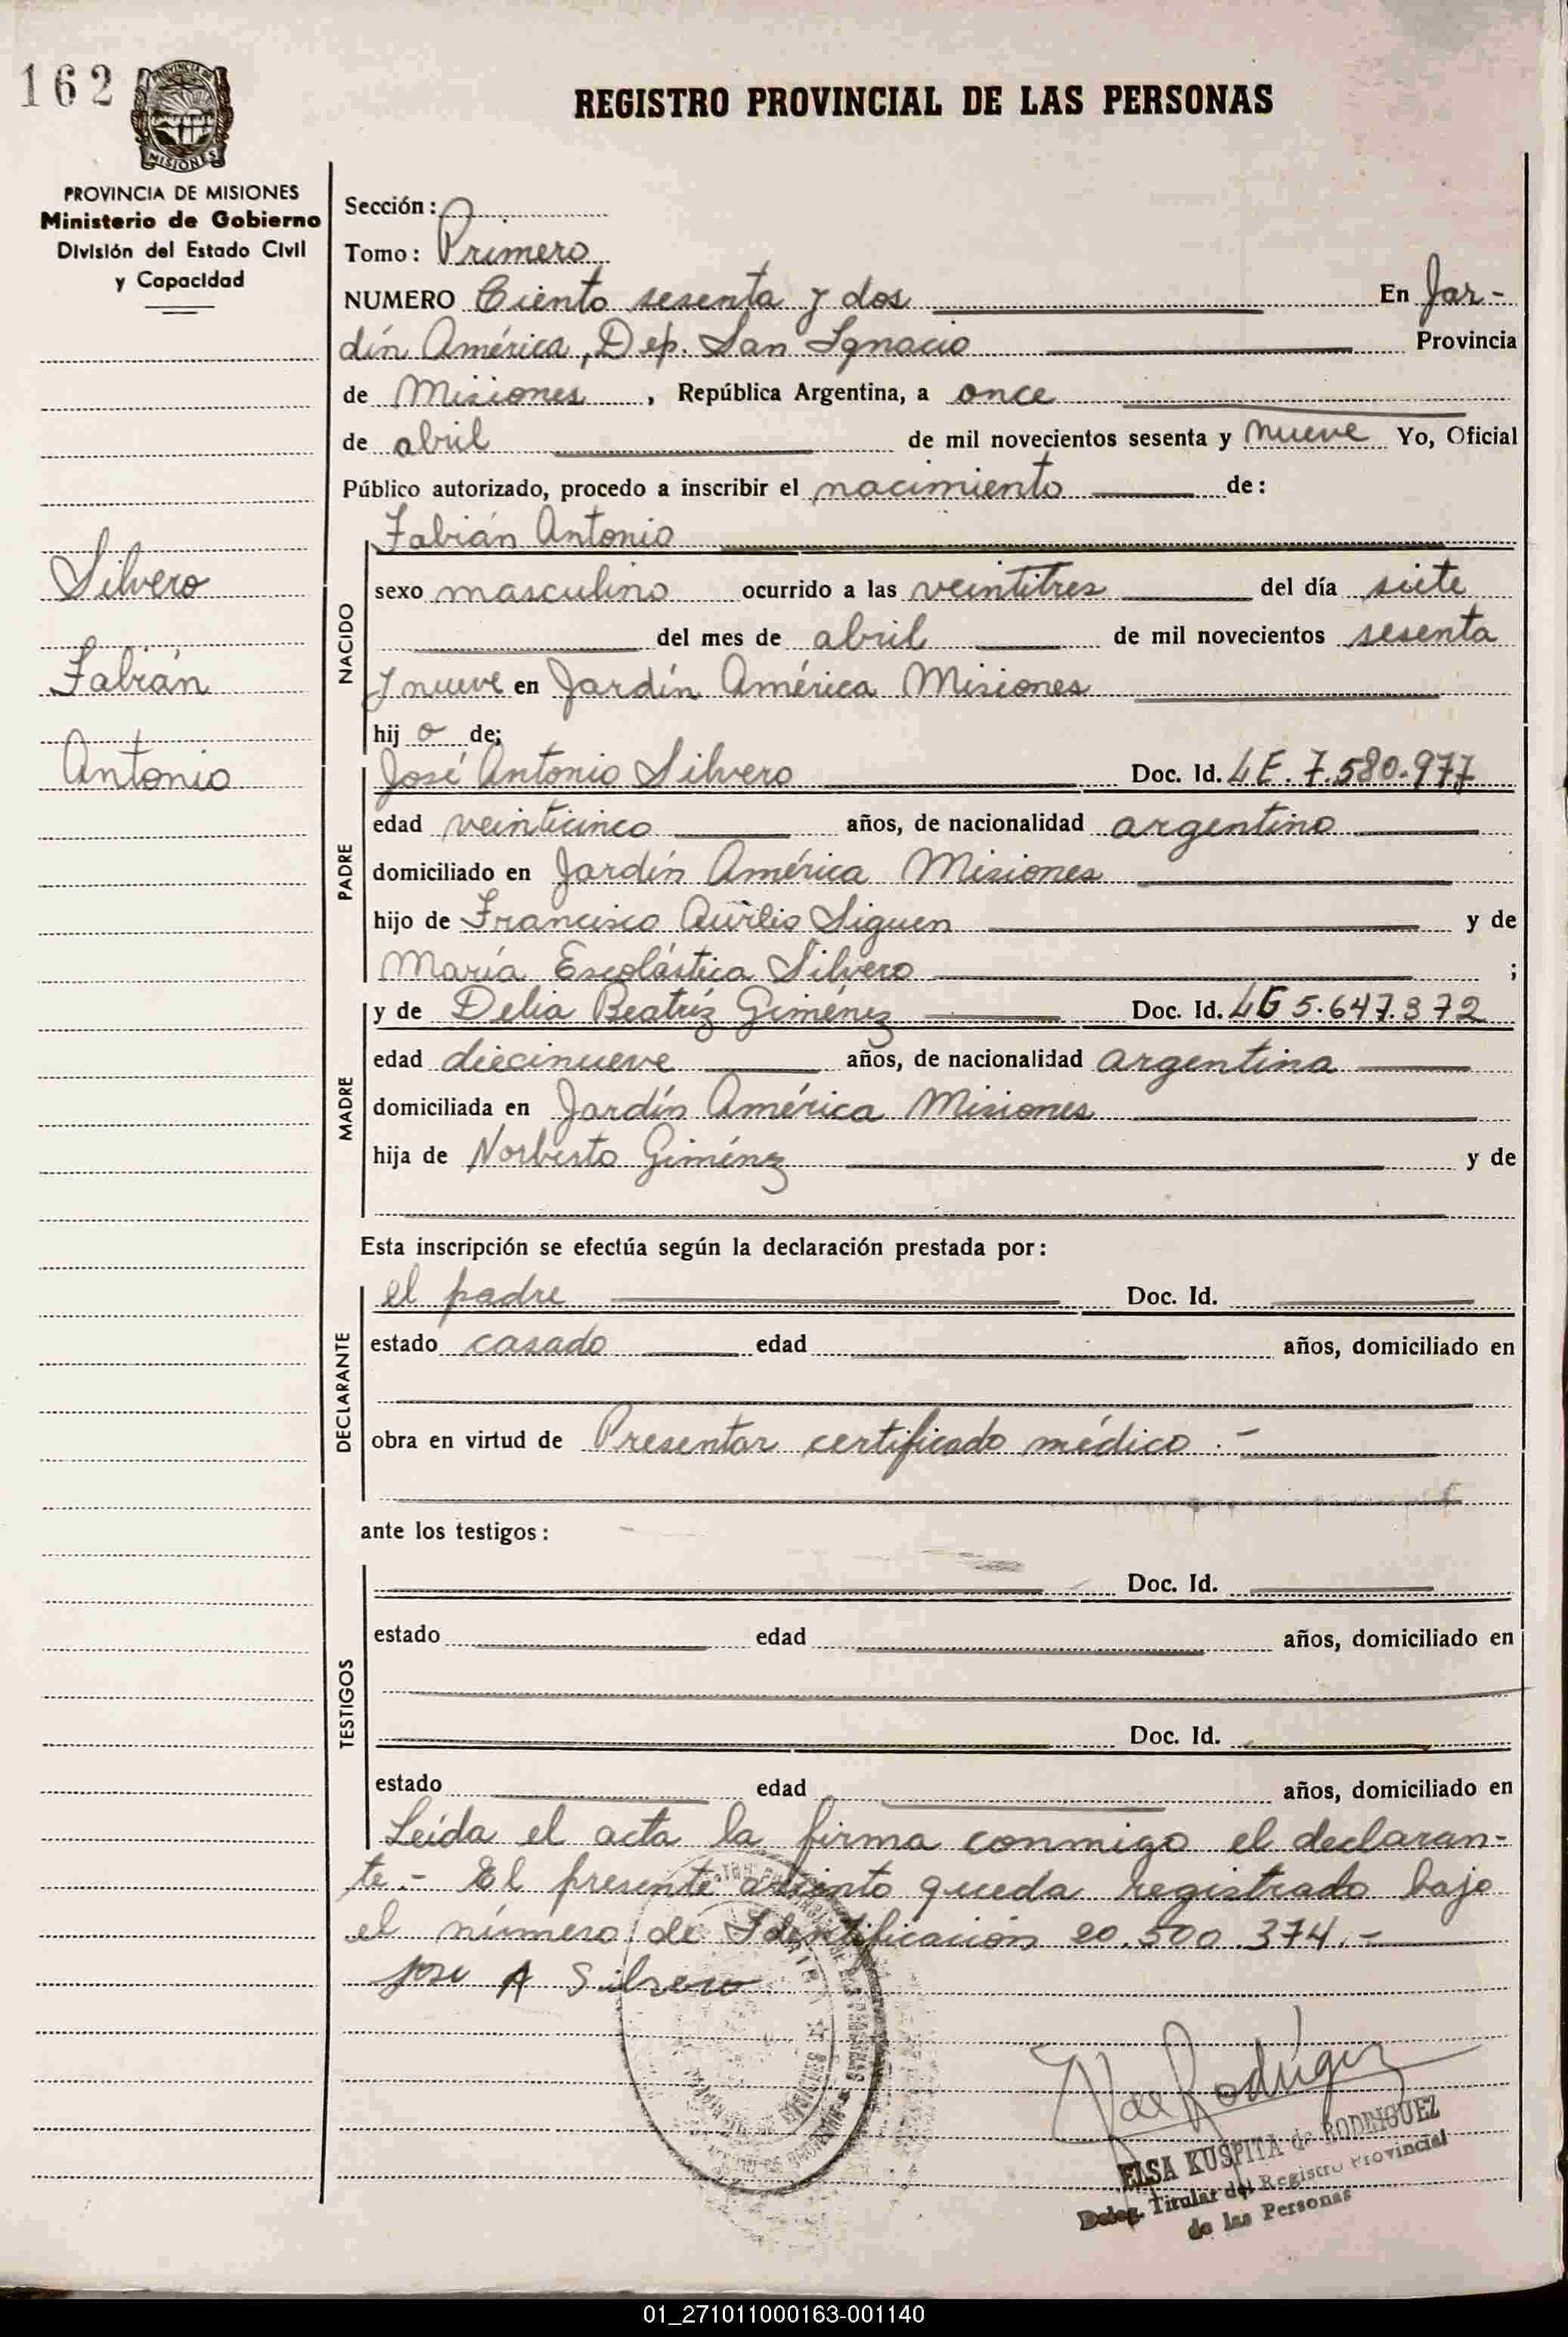 162
PROVINCIA DE
MISIONES
REGISTRO PROVINCIAL DE LAS PERSONAS
PROVINCIA DE MISIONES
Ministerio de Gobierno
División del Estado Civil
y Capacidad
Silvero
Fabián
Antonio
Sección:
Tomo: Primero
NUMERO Ciento sesenta y dos En Jar-
dín América, Dep. San Ignacio Provincia
de Misiones, República Argentina, a once
de abril de mil novecientos sesenta y nueve Yo, Oficial
Público autorizado, procedo a inscribir el nacimiento de:
NACIDO
Fabián Antonio
sexo masculino ocurrido a las veintitres del día siete
del mes de abril de mil novecientos sesenta
y nueve en Jardín América Misiones
hijo de;
PADRE
José Antonio Silvero Doc. Id. LE. 7.580.977
edad veinticinco años, de nacionalidad argentino
domiciliado en Jardín América Misiones
hijo de Francisco Siguen y de
María Escolástica Silvero ;
MADRE
y de Delia Beatríz Giménez Doc. Id. 5.647.372
edad diecinueve años, de nacionalidad argentina
domiciliada en Jardín América Misiones
hija de Norberto Giménez y de
Esta inscripción se efectúa según la declaración prestada por:
DECLARANTE
el padre Doc. Id.
estado casado edad años, domiciliado en
obra en virtud de Presentar certificado médico.-
ante los testigos:
TESTIGOS
Doc. Id.
estado edad años, domiciliado en
Doc. Id.
estado edad años, domiciliado en
Leída el acta la firma conmigo el declaran-
te.- El presente asiento queda registrado bajo
el número de Identificación 20.500.374.-
Jose A Silvero
de Rodríguez
ELSA KUSPITA de RODRIGUEZ
Deleg. Titular del Registro Provincial
de las Personas
01_271011000163-001140